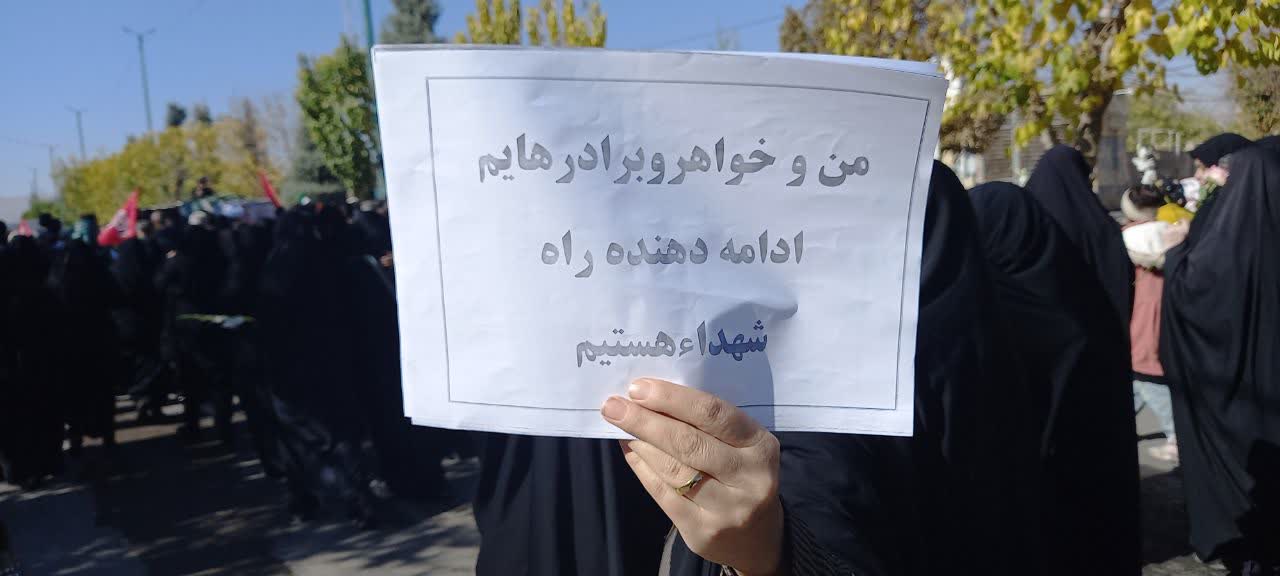 من و خواهروبرادرهایم
ادامه دهنده راه
شهداءهستیم